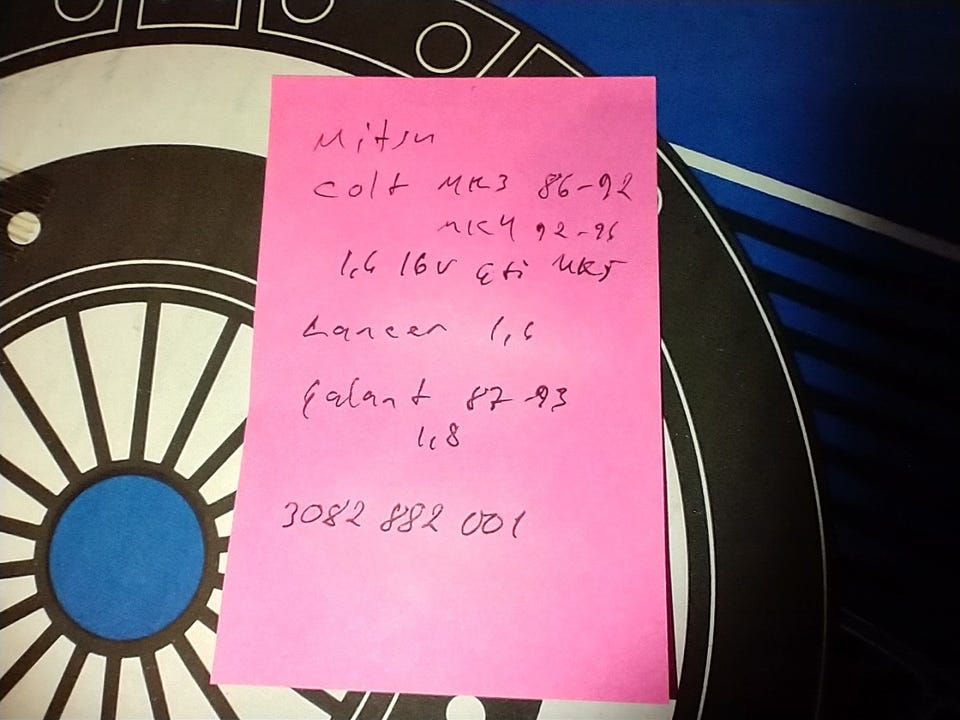 Mitsu
Colt MK3 86-92
MK4 92-96
1,6 16v Gti MK5
Lancer 1,6
Galant 87-93
1,8
3082 882 001